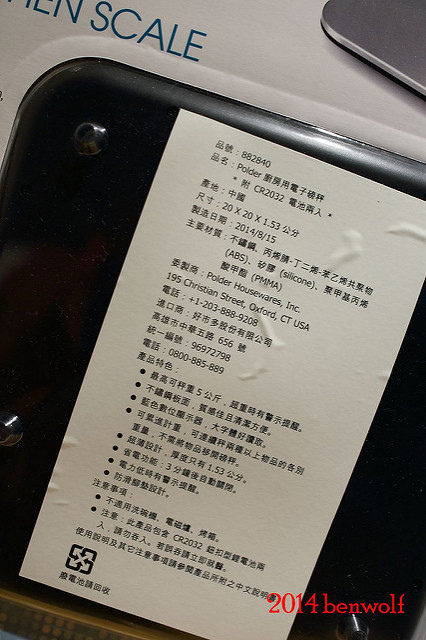 HEN SCALE
品號：882840
品名：Polder 廚房用電子磅秤
* 附 CR2032 電池兩入 *
產地：中國
尺寸：20 X 20 X 1.53 公分
製造日期：2014/8/15
主要材質：不鏽鋼、丙烯腈-丁二烯-苯乙烯共聚物
(ABS)、矽膠 (silicone)、聚甲基丙烯
酸甲酯 (PMMA)
委製商：Polder Housewares, Inc.
195 Christian Street, Oxford, CT USA
電話：+1-203-888-9208
進口商：好市多股份有限公司
高雄市中華五路 656 號
統一編號：96972798
電話：0800-885-889
產品特色：
● 最高可秤重 5 公斤，超重時有警示提醒。
● 不鏽鋼板面，質感佳且清潔方便。
● 藍色數位顯示器，大字體好讀取。
● 可累進計重，可連續秤兩種以上物品的各別
重量，不需將物品移開磅秤。
● 超薄設計，厚度只有 1.53 公分。
● 省電功能：3 分鐘後自動關閉。
● 電力低時有警示提醒。
● 防滑腳墊設計。
注意事項：
● 不適用洗碗機、電磁爐、烤箱。
● 注意：此產品包含 CR2032 鈕扣型鋰電池兩
入，請勿吞入。若誤吞請立即就醫。
使用說明及其它注意事項請參閱產品所附之中文說明
廢電池請回收
2014 benwolf